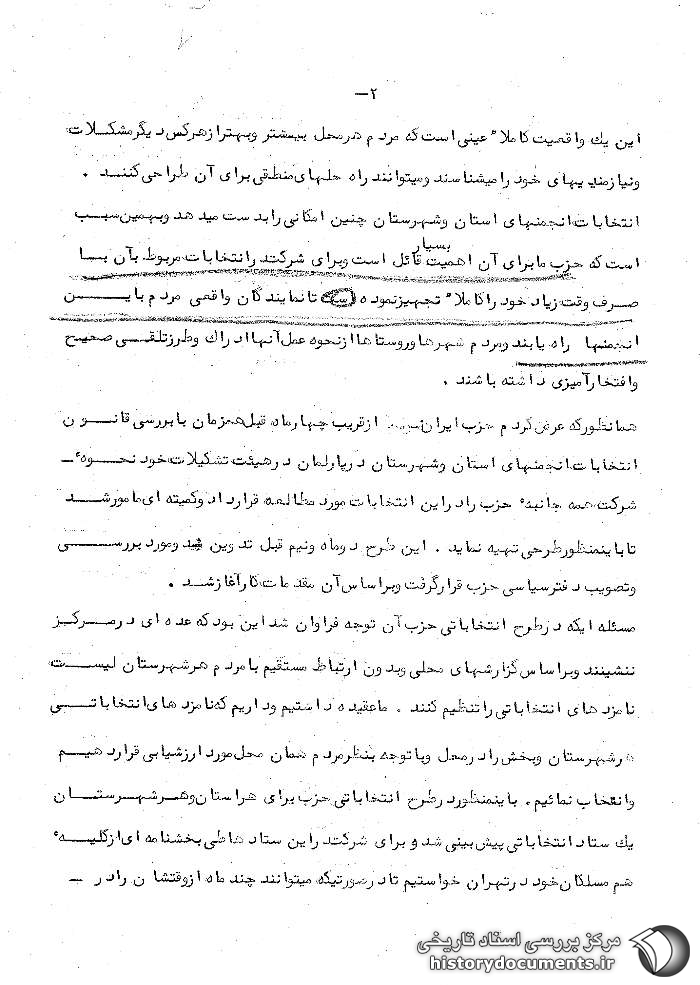 ۲ـ
این یک واقعیت کاملاً عینی است که مردم هر محل بیشتر و بهتر از هرکس دیگر مشکلات
و نیازمندیهای خود را میشناسند و میتوانند راه حلهای منطقی برای آن طراحی کنند .
انتخابات انجمنهای استان و شهرستان چنین امکانی را بدست میدهد و بهمین سبب
است که حزب ما برای آن اهمیت بسیار قائل است و برای شرکت در انتخابات مربوط بآن با
صرف وقت زیاد خود را کاملاً تجهیز نموده است تا نمایندگان واقعی مردم باین
انجمنها راه یابند و مردم شهرها و روستاها از نحوه عمل آنها ادراک و طرز تلقی صحیح
و افتخارآمیزی داشته باشند .
همانطور که عرض کردم حزب ایران از قریب چهار ماه قبل همزمان با بررسی قانون
انتخابات انجمنهای استان و شهرستان در پارلمان در هیئت تشکیلات خود نحوهٔ ـ
شرکت همه جانبهٔ حزب را در این انتخابات مورد مطالعه قرار داد و کمیته ای مامور شد
تا باینمنظور طرحی تهیه نماید . این طرح دو ماه و نیم قبل تدوین شد و مورد بررسی
و تصویب دفتر سیاسی حزب قرار گرفت و براساس آن مقدمات کار آغاز شد .
مسئله ایکه در طرح انتخاباتی حزب آن توجه فراوان شد این بود که عده ای در مرکز
ننشینند و براساس گزارشهای محلی و بدون ارتباط مستقیم با مردم هر شهرستان لیست
نامزدهای انتخاباتی را تنظیم کنند . ما عقیده داشتیم و داریم که نامزدهای انتخاباتی
هر شهرستان و بخش را در محل و با توجه بنظر مردم همان محل مورد ارزشیابی قرار دهیم
و انتخاب نمائیم . باینمنظور در طرح انتخاباتی حزب برای هر استان و هر شهرستان
یک ستاد انتخاباتی پیش بینی شد و برای شرکت در این ستادها طی بخشنامه ای از کلیهٔ
هم مسلکان خود در تهران خواستیم تا در صورتیکه میتوانند چند ماه از وقتشان را در ـ
مرکز بررسی اسناد تاریخی
historydocuments.ir